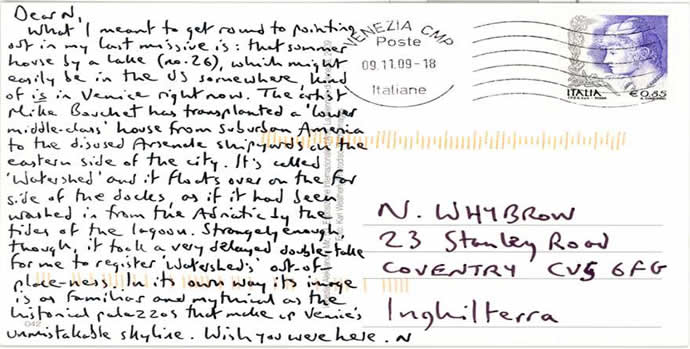 Dear N,
What I meant to get round to pointing
out in my last missive is: that summer
house by a lake (no.26), which might
easily be in the US somewhere kind
of is in Venice right now. The artist
Mike Bouchet has transplanted a 'lower
middle-class' house from suburban America
to the disused Arsenale shipyards on the
eastern side of the city. It's called
'Watershed' and it floats over on the far
side of the docks, as if it had been
washed in from the Adriatic by the
tides of the lagoon. Strangely enough,
though, it took a very delayed double-take
for me to register 'Watershed's' out-of-
place-ness. In its own way its image
is as familiar and mythical as the
historical palazzos that make up Venice's
unmistakable skyline. Wish you were here. N
042
VENEZIA CMP
Poste
09.11.09-18
Italiane
ITALIA
€0,85
N. WHYBROW
23 Stanley Road
COVENTRY CV5 6FG
Inghilterra